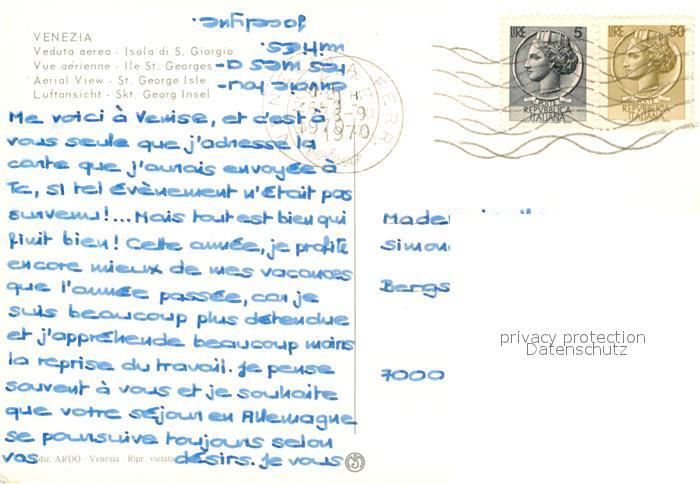 VENEZIA
Veduta aerea - Isola di S. Giorgio
Vue aérienne - Ile St. Georges
Aerial View - St. George Isle
Luftansicht - Skt. Georg Insel
LIRE 5
REPVBBLICA
ITALIANA
LIRE 50
REPVBBLICA
ITALIANA
FERR.
-9
1970
Me voici à Venise, et c'est à
vous seule que j'adresse la
carte que j'aurais envoyée à
Tc, si tel évènement n'était pas
survenu!... Mais tout est bien qui
finit bien! Cette année, je profite
encore mieux de mes vacances
que l'année passée, car je
suis beaucoup plus détendue
et j'appréhende beaucoup moins
la reprise du travail. Je pense
souvent à vous et je souhaite
que votre séjour en Allemagne
se poursuive toujours selon
vos désirs. Je vous
envoie tou-
tes mes a-
mitiés.
Jocelyne.
Simon
Bergs
7000
diz. ARDO - Venezia - Ripr. vietata
privacy protection
Datenschutz